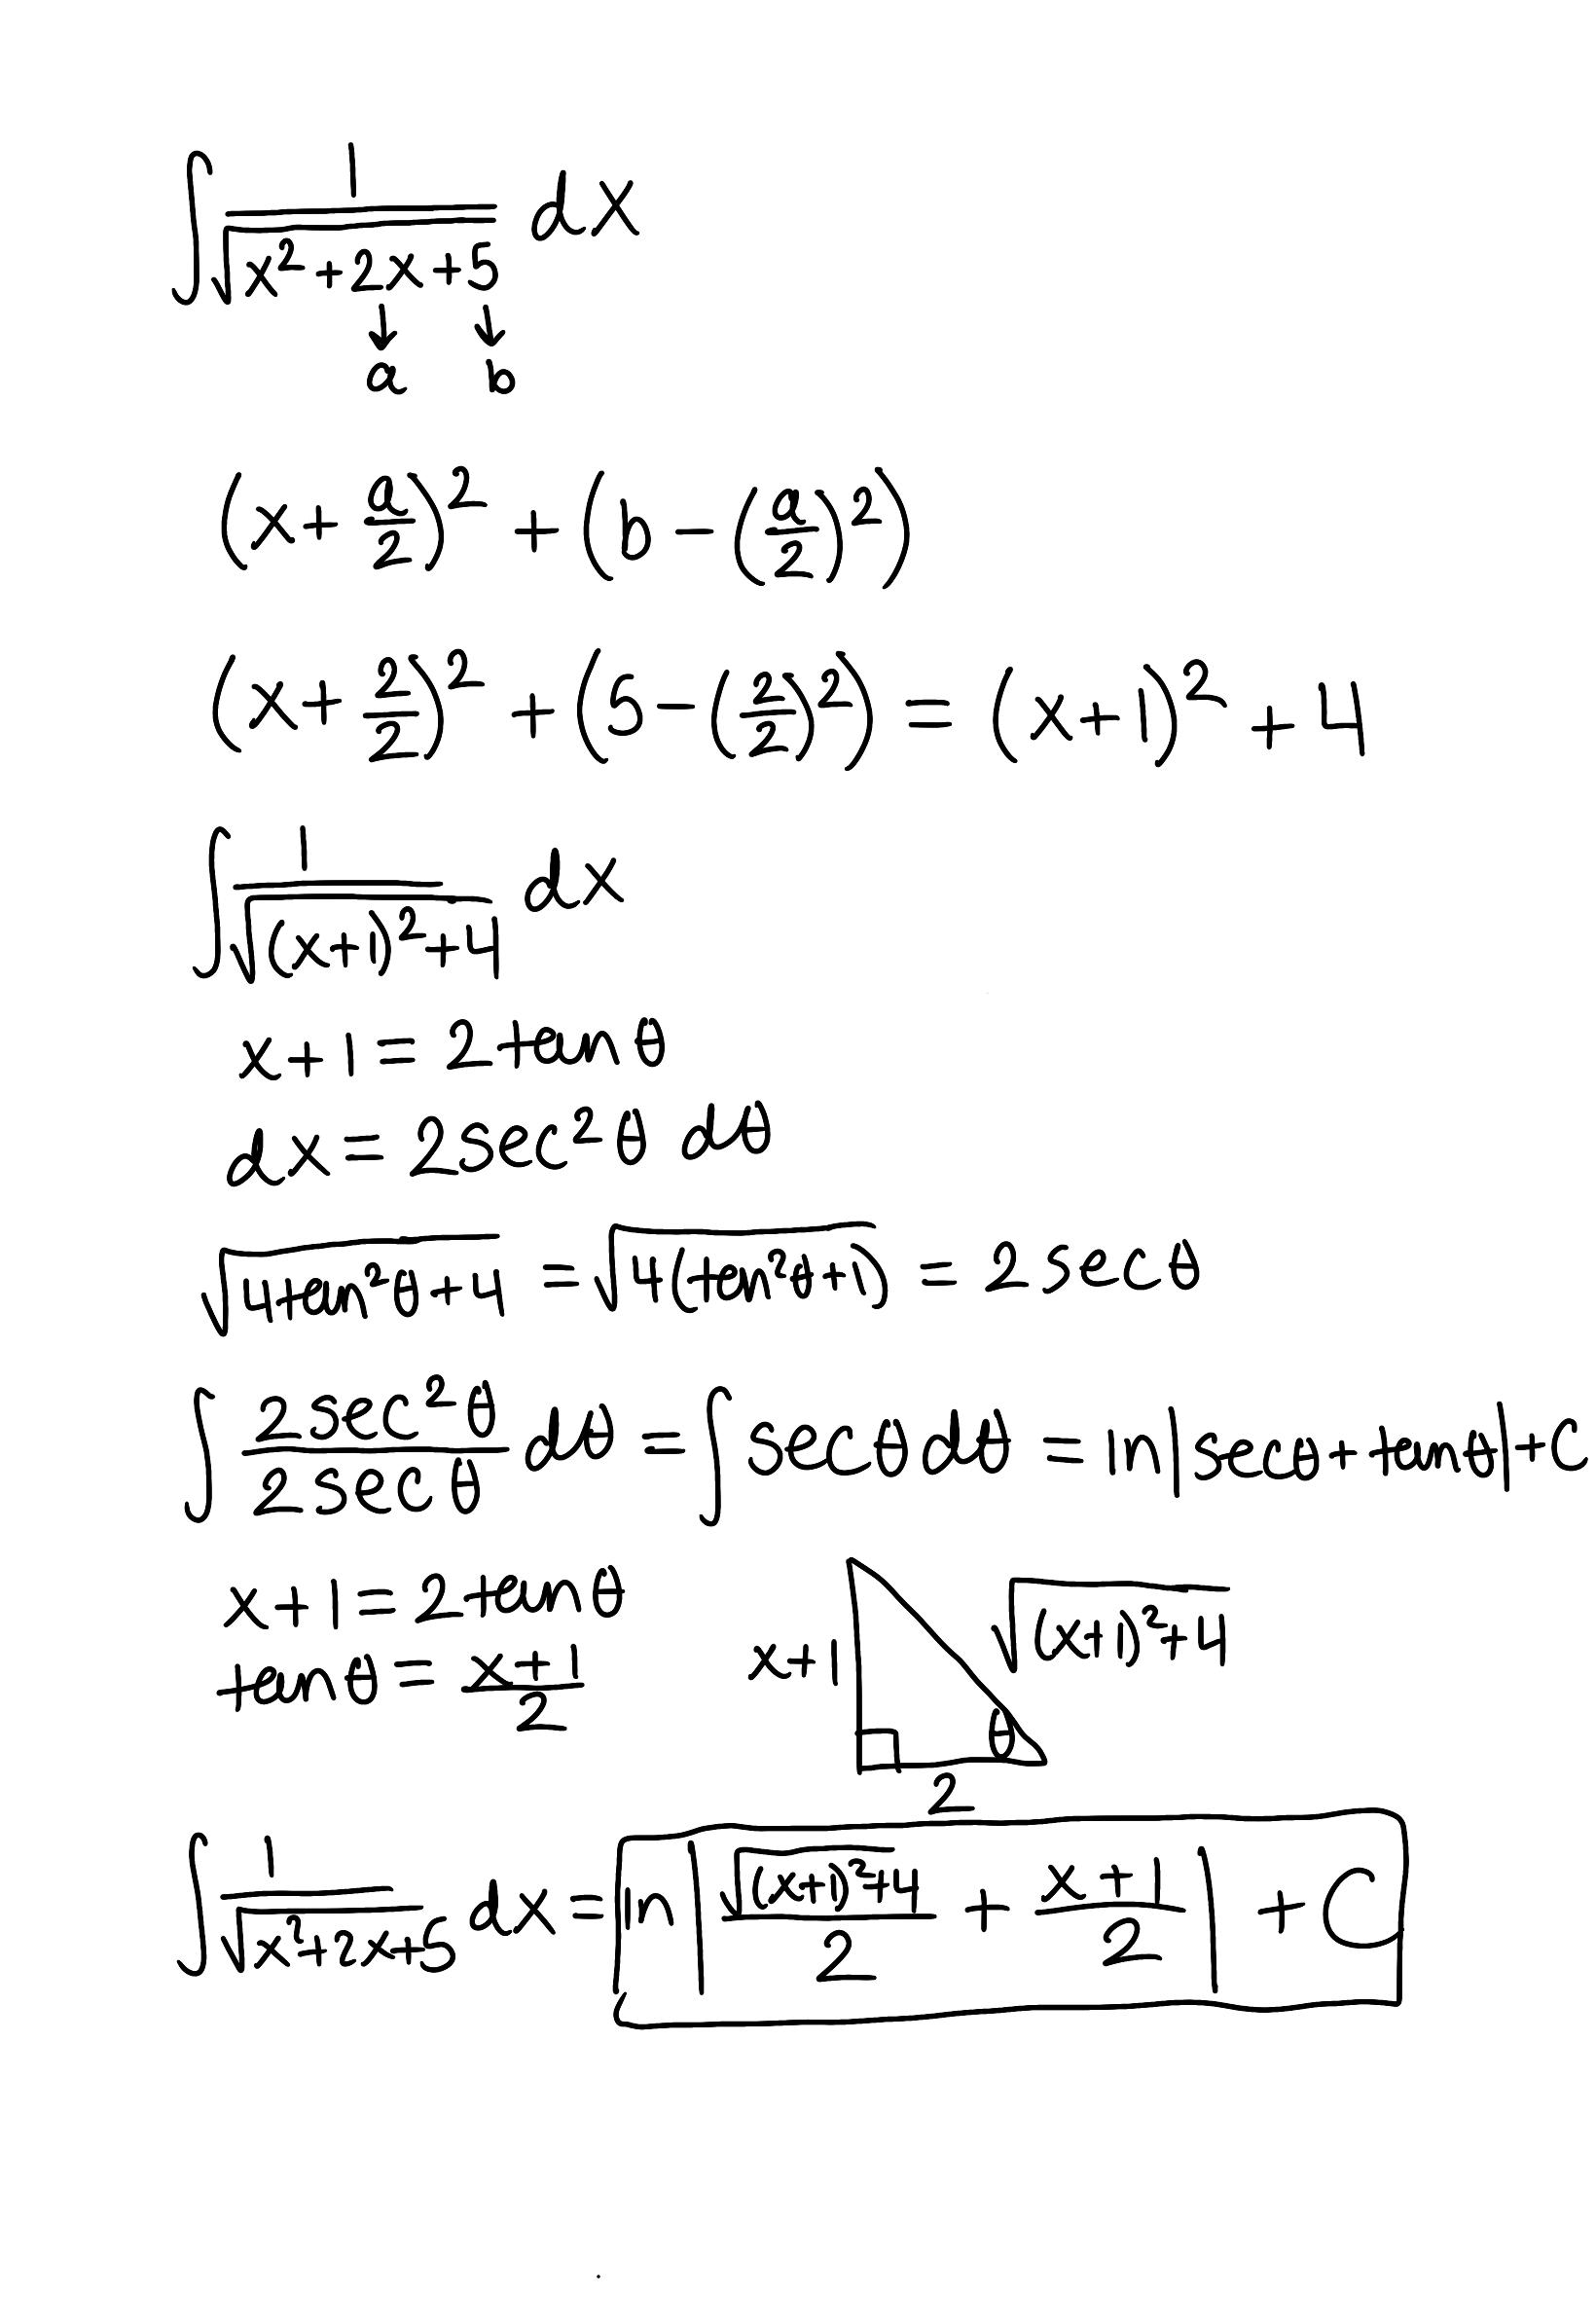 ∫ 1/√(x²+2x+5) dx
↓ ↓
a b
(x+a/2)² + (b-(a/2)²)
(x+2/2)² + (5-(2/2)²) = (x+1)² + 4
∫ 1/√((x+1)²+4) dx
x+1 = 2tanθ
dx = 2sec²θ dθ
√(4tan²θ+4) = √(4(tan²θ+1)) = 2secθ
∫ 2sec²θ/2secθ dθ = ∫ secθ dθ = ln|secθ+tanθ|+C
x+1 = 2tanθ
tanθ = (x+1)/2
x+1
√((x+1)²+4)
θ
2
∫ 1/√(x²+2x+5) dx = ln|√((x+1)²+4)/2 + (x+1)/2| + C